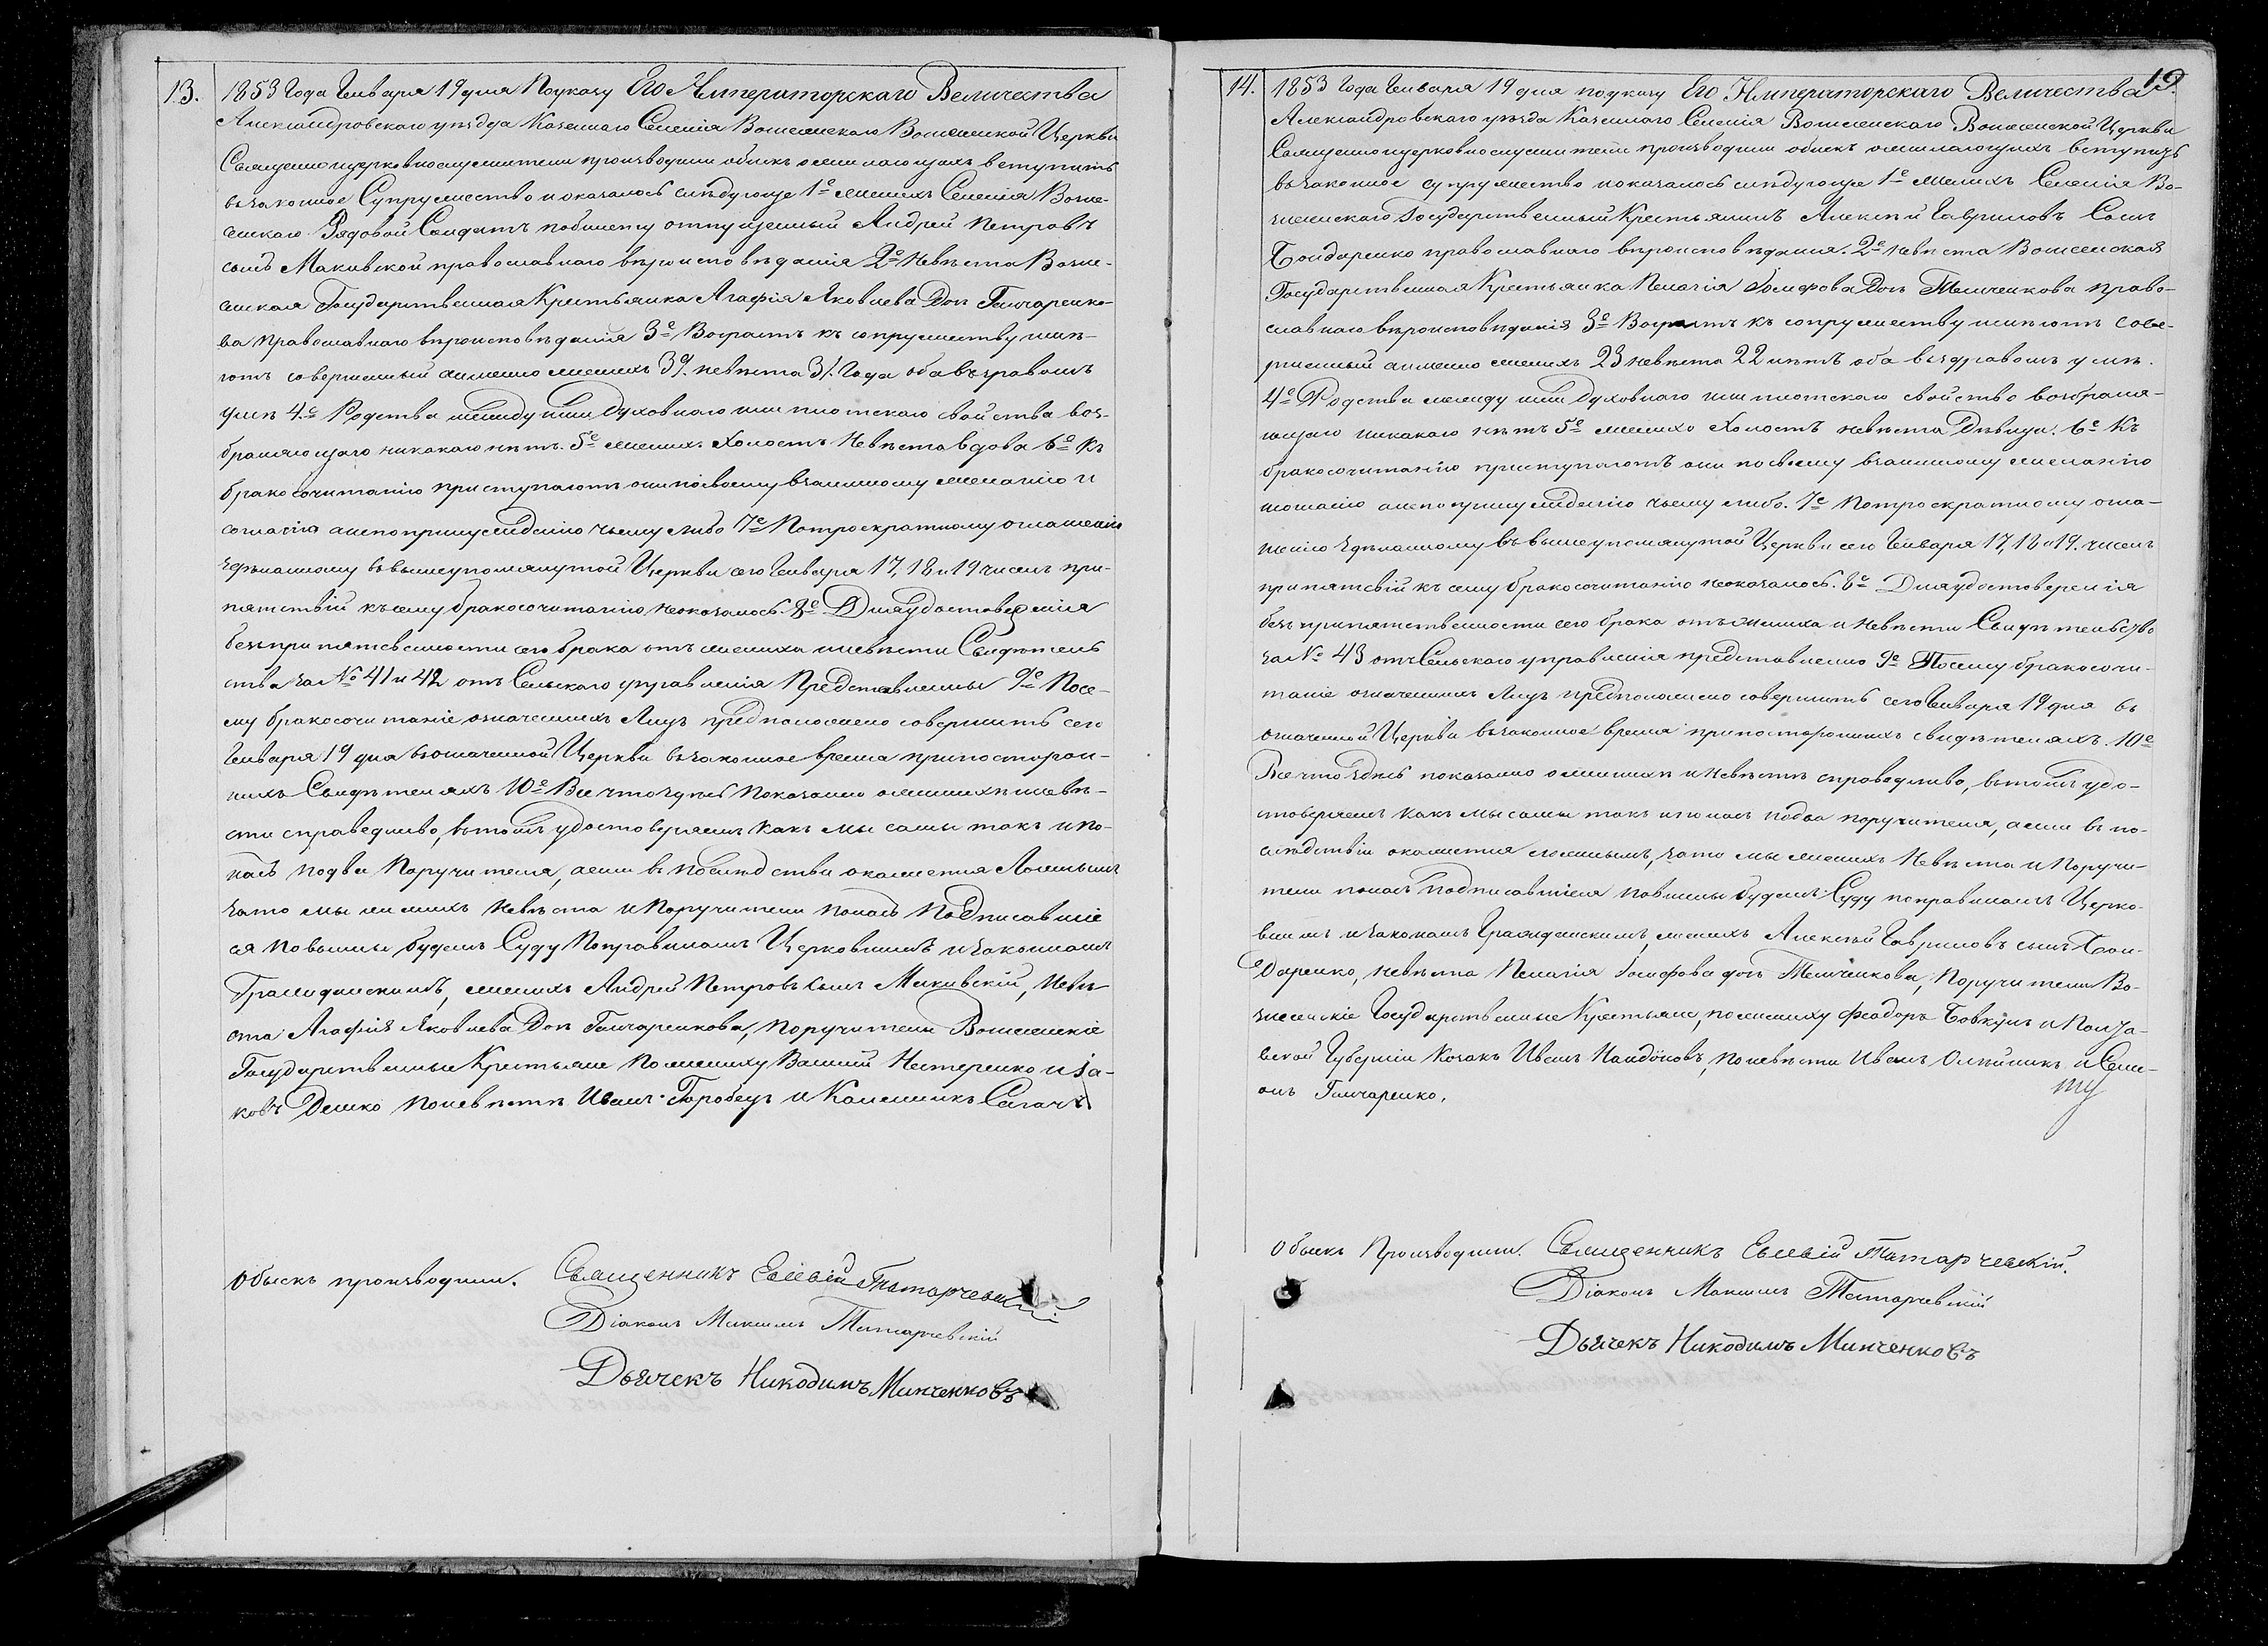 13.
1853 года Генваря 19 дня По указу Его Императорскаго Величества
Александровскаго уѣзда Казеннаго Селенія Вознесенскаго Вознесенской Церкви
Священноицерковнослужители производили обыскъ о желающихъ вступить
въ законное Супружество и оказалось слѣдующе 1е женихъ Селенія Возне-
сенскаго Рядовой Солдатъ побилету отпущенный Андрей Петровъ
сынъ Макивской православнаго вѣроисповѣданія 2е Невѣста Возне-
сенская Государственная Крестьянка Агафія Яковлева Доч Гончаренко-
ва православнаго вѣроисповѣданія 3е Возрастъ къ сопружеству имѣ-
ютъ совершенный аименно женихъ 39. невѣста 31. Года оба въ здравомъ
умѣ 4.е Родства между ими духовнаго или плотскаго свойства воз-
браняющаго никакаго нѣтъ. 5е женихъ Холостъ Невѣста вдова 6е Къ
бракосочитанію приступаютъ они посвоему взаимному желанію и
согласія анепопринуждѣнію чьему либо 7е Потроекратному оглашенію
здѣланному въ вышеупомянутой Церкви сего Генваря 17, 18 и 19 числъ при-
пятствій къ сему бракосочитанію неоказалось. 8е Для удостовѣренія
безприпятсвенности сего брака отъ жениха иневѣсти Свидѣтель
ства за № 41 и 42 отъ Сельскаго управленія Представленны 9е Посе-
му бракосочитаніе означенныхъ Лицъ предположено совершить сего
Генваря 19 дня въ означенной Церкви въ законное время припосторон-
нихъ Свидѣтеляхъ 10е Все что здѣсь показанно оженихѣ иневѣ-
сти справедливо, вътомъ удостоверяемъ какъ мы сами такъ и по-
насъ подва Поручителя, аели въ послѣдствіи окажется Ложнымъ
зато мы женихъ невѣста и Поручители понасъ Подписавшіе
ся повинны будемъ Суду Поправиламъ Церковнимъ и законамъ
Гражданскимъ, женихъ Андрей Петровъ сынъ Макивскій, Невѣ-
ста Агафія Яковлева Доч Гончаренкова, поручители Вознесенскіе
Государственные Крестьяне По жениху Василій Нестеренко и Іа-
ковъ Дешко поневѣстѣ Иванъ Горобецъ и Калениикъ Сагачъ
Обыскъ производили. Священникъ Евсевій Татарчевскій
Діаконъ Максимъ Татарчевскій
Дьячекъ Никодимъ Минченковъ
19.
14.
1853 Года Генваря 19 дня по указу Его Императорскаго Величества
Александровскаго уѣзда Казеннаго Селенія Вознесенскаго Вознесенской Церкви
Священноицерковнослужители производили обыскъ ожелающихъ вступить
въ законное супружество и оказалось слѣдующе 1е женихъ Селенія Во-
знесенскаго Государственный Крестьянинъ Алексѣй Гавриловъ Сынъ
Бондаренко православнаго вѣроисповѣданія. 2е невѣста Вознесенская
Государственная Крестьянка Пелагія Іосифова Доч Темченкова право-
славнаго вѣроисповѣданія 3е Возрастъ къ сопружеству имѣютъ сове-
ршенный аименно женихъ 23 невѣста 22 лѣтъ оба въ здравомъ умѣ.
4е Родства между ими духовнаго или плотскаго свойства возбраня-
ющаго никакаго нѣтъ 5е женихъ Холостъ невѣста Дѣвица. 6е Къ
бракосочитанію приступаютъ они посвоему взаимному желанію
исогласію анепопринуждѣнію чьему либо. 7е Потроекратному огла-
шенію здѣланному въ вышеупомянутой Церкви сего Генваря 17, 18 и 19. числъ
припятсвій къ сему бракосочитанію неоказалось. 8е Для удостоверенія
безъ припятственности сего брака отъ жениха и невѣсти Свидѣтельство
за № 43 отъ Сельскаго управленія представленно 9е Посему бракосочи-
таніе означенныхъ Лицъ предположено совершить сего Генваря 19 дня въ
означенной Церкви въ законное время припостороннихъ свидѣтеляхъ. 10е
Все что здѣсь показанно о женихѣ и невѣстѣ справедливо, вътомъ удо-
стоверяемъ какъ мы сами такъ и понасъ подва поручителя, аели въ по-
слѣдствіи окажется ложнымъ, зато мы женихъ Невѣста и Поручи-
тели понасъ Подписавшіеся повинны будемъ Суду поправиламъ Церко-
внимъ и законамъ Гражданскимъ, женихъ Алексѣй Гавриловъ сынъ Бон-
даренко, невѣста Пелагія Іосифова доч Темченкова, Поручители Во-
знесенскіе Государственные Крестьяне, по жениху Феодоръ Бовкунъ и Полта-
вской Губерніи Козакъ Иванъ Найдіоновъ, поневѣсти Иванъ Олейникъ и Семи-
онъ Гончаренко.
Обыскъ Производили. Священникъ Евсевій Татарчевскій.
Діаконъ Максимъ Татарчевскій
Дьячекъ Никодимъ Минченковъ